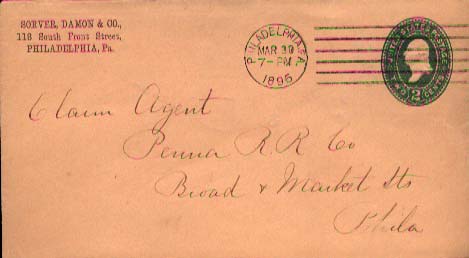 SORVER, DAMON & CO.,
118 South Front Street,
PHILADELPHIA, Pa.
PHILADELPHIA, PA.
MAR 30
7-PM
1896
UNITED STATES POSTAGE
TWO 2 CENTS
Claim Agent
Penna R. R. Co
Broad & Market Sts
Phila